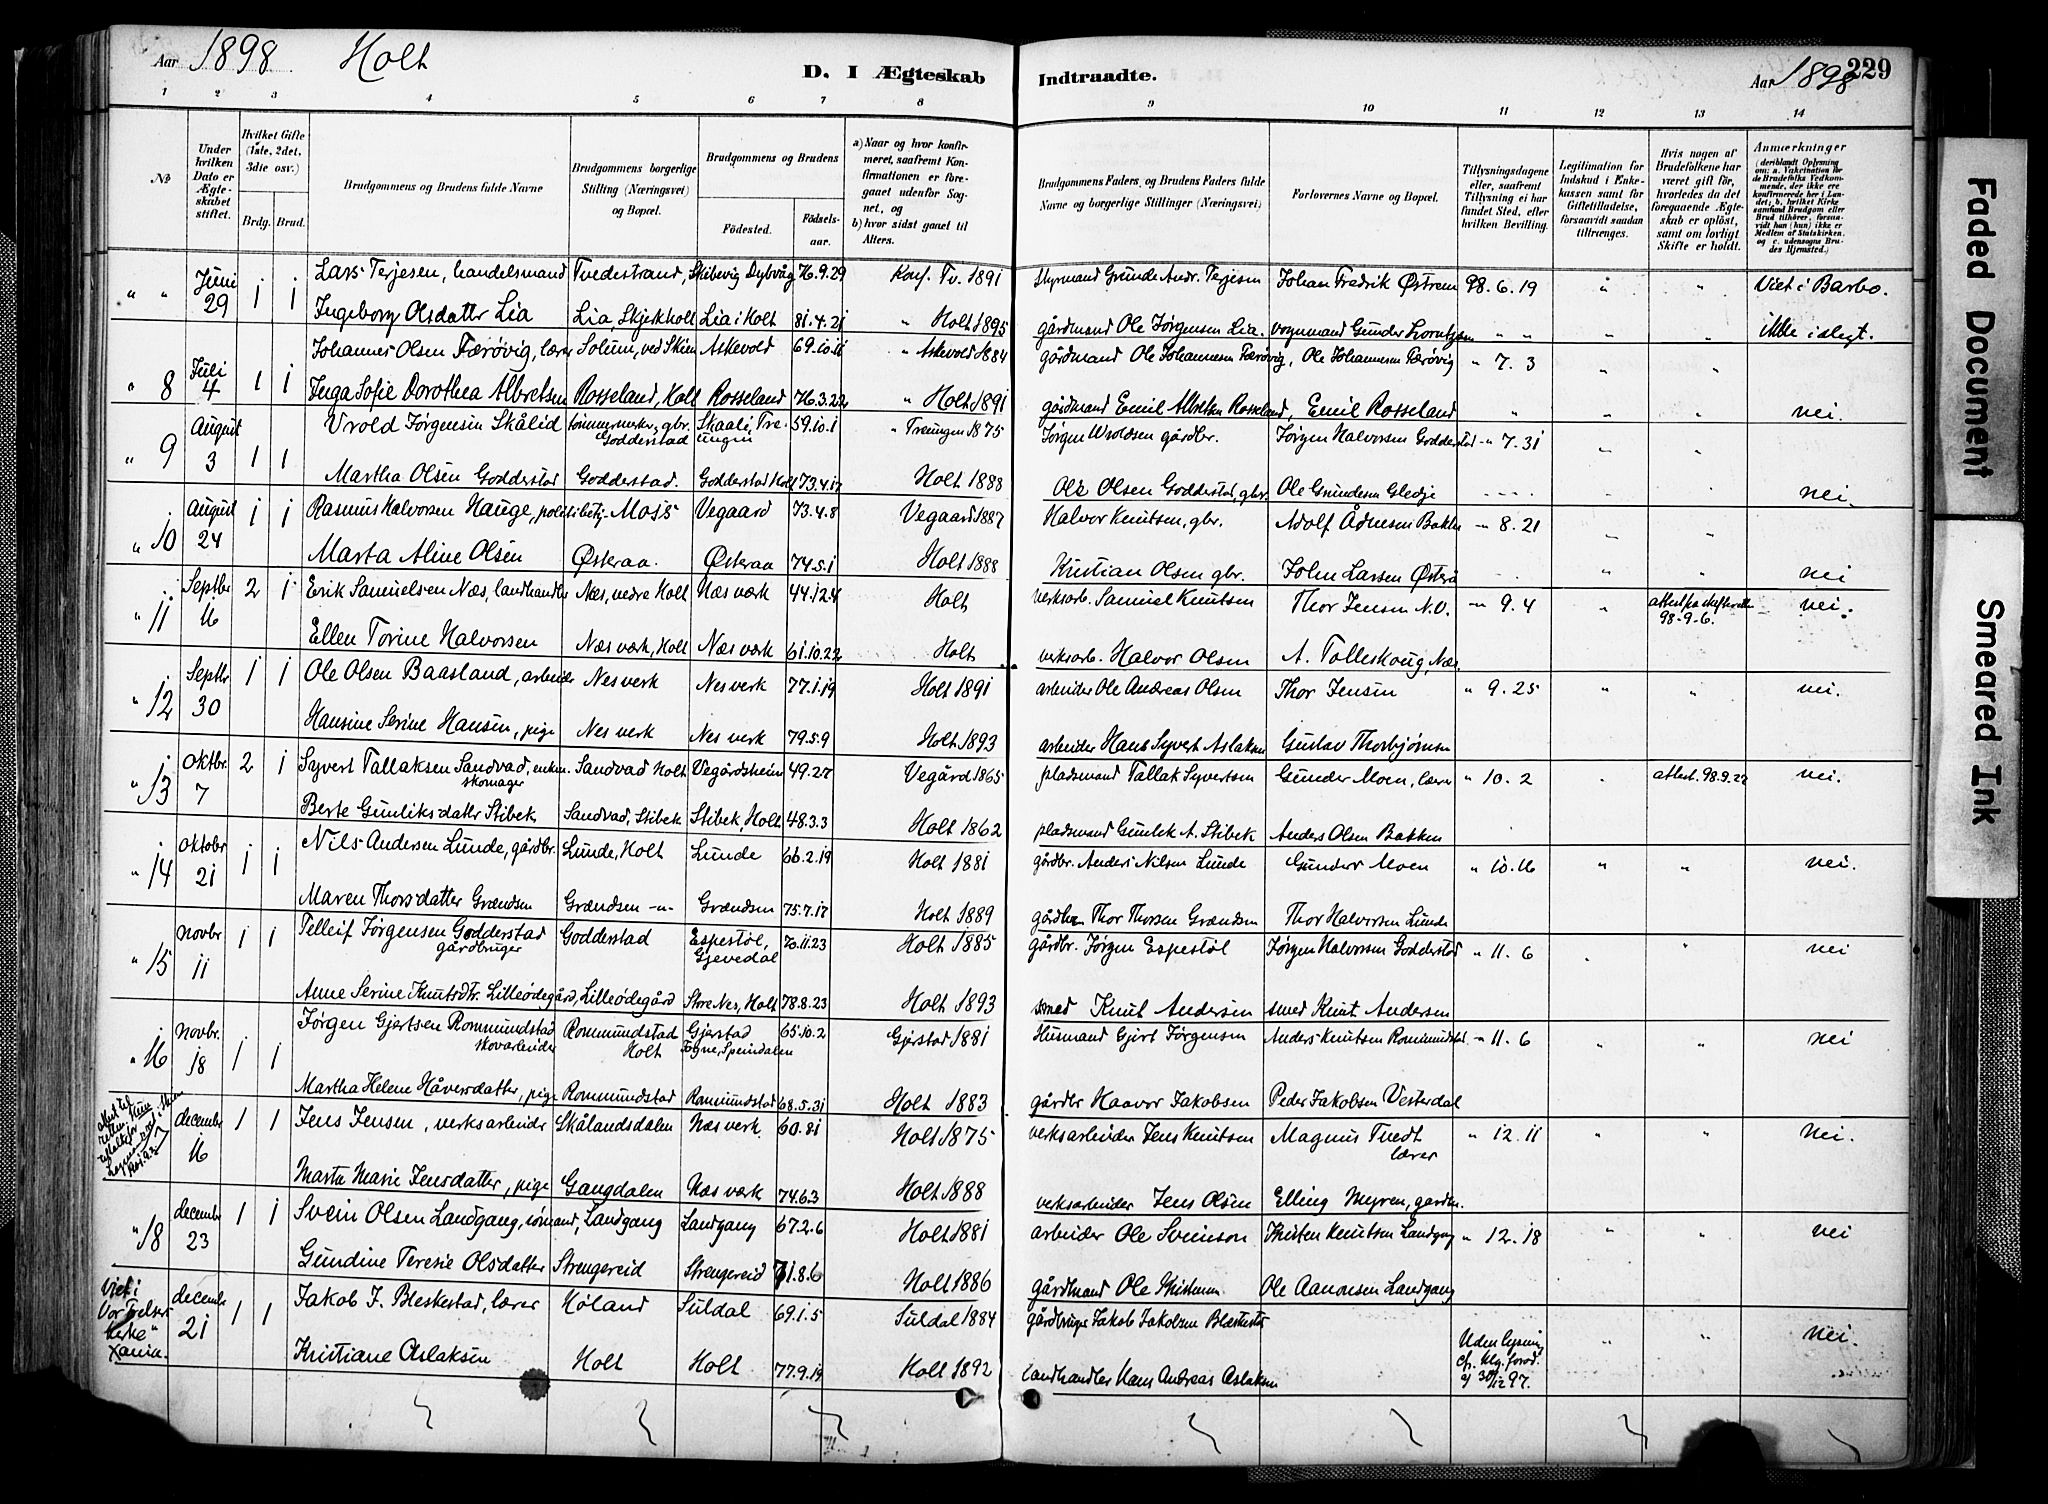 Aar 1898 Holt
D. I Ægteskab Indtraadte.
Aar 1898 229
1 2 3 4 5 6 7 8 9 10 11 12 13 14
№
Under hvilken Dato er Ægteskabet stiftet.
Hvilket Gifte (1ste, 2det, 3die osv.)
Brdg. Brud.
Brudgommens og Brudens fulde Navne
Brudgommens borgerlige Stilling (Næringsvei) og Bopæl.
Brudgommens og Brudens
Födested. Födselsaar.
a) Naar og hvor konfirmeret, saafremt Konfirmationen er foregaaet udenfor Sognet, og
b) hvor sidst gaaet til Alters.
Brudgommens Faders, og Brudens Faders fulde Navne og borgerlige Stillinger (Næringsvei)
Forlovernes Navne og Bopæl.
Tillysningsdagene eller, saafremt Tillysning ei har fundet Sted, efter hvilken Bevilling.
Legitimation for Indskud i Enkekassen samt for Giftetilladelse, forsaavidt saadan tiltrænges.
Hvis nogen af Brudefolkene har været gift för, hvorledes da det foregaaende Ægteskab er oplöst, samt om lovligt Skifte er holdt.
Anmerkninger (deriblandt Oplysning om: a. Vakcination for de Brudefolks Vedkommende, der ikke ere konfirmerede her i Landet, b. hvilket Kirkesamfund Brudgom eller Brud tilhörer, forsaavidt han (hun) ikke er Medlem af Statskirken, og c. udensogns Brudes Hjemsted.)
" " Juni 29 1 1 Lars Terjesen, handelsmand Tvedestrand, Skibevig Dybvåg 76.9.29 Konf. Tv. 1891 styrmand Grunde Andr. Terjesen Johan Fredrik Østrem 98.6.19 " " Viet i Barbo.
Ingeborg Olsdatter Lia Lia, Skjerkholt Lia i Holt 81.4.21 " Holt 1895 gårdmand Ole Jørgensen Lia. vognmand Gunder Lorentzen " " ikke i slegt.
" 8 Juli 4 1 1 Johannes Olsen Færøvig, lærer Solum, ved Skien Askevold 69.10.11 " Askevold 1884 gårdmand Ole Johannesen Færøvig, Ole Johannesen Færøvig " 7.3 " "
Inga Sofie Dorothea Albretsen Rosseland, Holt Rosseland 76.3.22 " Holt 1891 gårdmand Emil Albretsen Rosseland, Emil Rosseland " " " nei.
" 9 August 3 1 1 Vrold Jørgensen Skålid tømmermerker, gbr. Godderstad Skaali, Treungen 59.10.1 " Treungen 1875 Jørgen Wroldsen gårdbr. Jørgen Halvorsen Godderstad " 7.31 " "
Martha Olsen Godderstad Godderstad. Godderstad Holt 73.4.17 Holt 1888 Ole Olsen Godderstad, gbr. Ole Grundesen Gledje nei.
" 10 August 24 1 1 Rasmus Halvorsen Hauge, politibetj. Moss Vegaard 73.4.8 Vegaard 1887 Halvor Knutsen, gbr. Adolf Ådnesen Bakke " 8.21 " "
Marta Aline Olsen Østeraa. Østeraa 74.5.1 Holt 1888 Kristian Olsen gbr. John Larsen Østerå " " nei
" 11 Septbr 16 2 1 Erik Samuelsen Næs, landhandler Næs, nedre Holt Næs værk 44.12.4 Holt verksarb. Samuel Knutsen Thor Jensen N.V. " 9.4 " 98-9-6. nei.
Ellen Torine Halvorsen Næs værk, Holt Næs værk 61.10.22 Holt verksarb. Halvor Olsen A. Tolleskoug, Næs.
" 12 Septbr 30 1 1 Ole Olsen Baasland, arbeider Nes verk Nes verk 77.1.19 Holt 1891 arbeider Ole Andreas Olsen Thor Jensen " 9.25 " " nei.
Hansine Serine Hansen, pige Nes verk Nes verk 79.5.9 Holt 1893 arbeider Hans Syvert Aslaksen Gustav Thorbjørnsen
" 13 Oktbr. 7 2 1 Syvert Tallaksen Sandvad, enkem. skomager Sandvad Holt Vegårdsheim 49.2.7 Vegård 1865 pladsmand Tallak Syvertsen Gunder Moen, lærer " 10.2 " attest. 98.9.22 nei.
Berte Gunliksdatter Stibek Sandvad, Stibek Stibek, Holt 48.3.3 Holt 1862 pladsmand Gunlek A. Stibek Anders Olsen Bakken
" 14 Oktober 21 1 1 Nils Andersen Lunde, gårdbr. Lunde, Holt Lunde 66.2.19 Holt 1881 gårdbr. Anders Nilsen Lunde Gunder Moen " 10.16 " " nei.
Maren Thorsdatter Grændsen Grændsen -"- Grændsen 75.7.17 Holt 1889 Thor Thorsen Grændsen Thor Halvorsen Lunde
" 15 Novbr 11 1 1 Telleif Jørgensen Godderstad gårdbruger Godderstad Espestøl, Gjevedal 70.11.23 Holt 1885 gårdbr. Jørgen Espestøl Jørgen Halvorsen Godderstad " 11.6 " " nei
Anne Serine Knutsdtr. Lilleødegård, Lilleødegård Store Nes, Holt 78.8.23 Holt 1893 smed Knut Andersen smed Knut Andersen
" 16 Novbr. 18 1 1 Jørgen Gjertsen Rommundstad skovarbeider Rommundstad Holt Gjerstad 65.10.2 Gjerstad 1881 Husmand Gjert Jørgensen Anders Knutsen Rommundstad " 11.6 " " nei
Martha Helene Håversdatter, pige Rommundstad Rommundstad 68.5.31 Holt 1883 gårdbr Haavor Jakobsen Peder Jakobsen Vesterdal
december 16 1 1 Jens Jensen, verksarbeider Skålandsdalen Næs verk. 60.8.1 Holt 1875 verksarbeider Jens Knutsen Magnus Tvedt lærer " 12.11 " " nei.
Marta Marie Jensdatter, pige Gangdalen Næs værk 74.6.3 Holt 1888 verksarbeider Jens Olsen Elling Myren, gårdm.
" 18 december 23 1 1 Svein Olsen Landgang, sømand, Landgang Landgang 67.2.6 Holt 1881 arbeider Ole Sveinson Kristen Knutsen Landgang " 12.18 " " nei
Gundine Teresie Olsdatter Strengereid Strengereid 71.8.6 Holt 1886 gårdmand Ole Ole Aanonsen Landgang
Viet i Vor Frelsers Kirke" Xania. december 21 1 1 Jakob J. Bleskestad, lærer Høland Suldal 69.1.5 Suldal 1884 gårdbruger Jakob Jakobsen Bleskestad Uden lysning cf. klg. forod. 30/12 97. " " nei.
Kristiane Aslaksen Holt Holt 77.9.19 Holt 1892 landhandler Hans Andreas Aslaksen
Faded Document
Smeared Ink